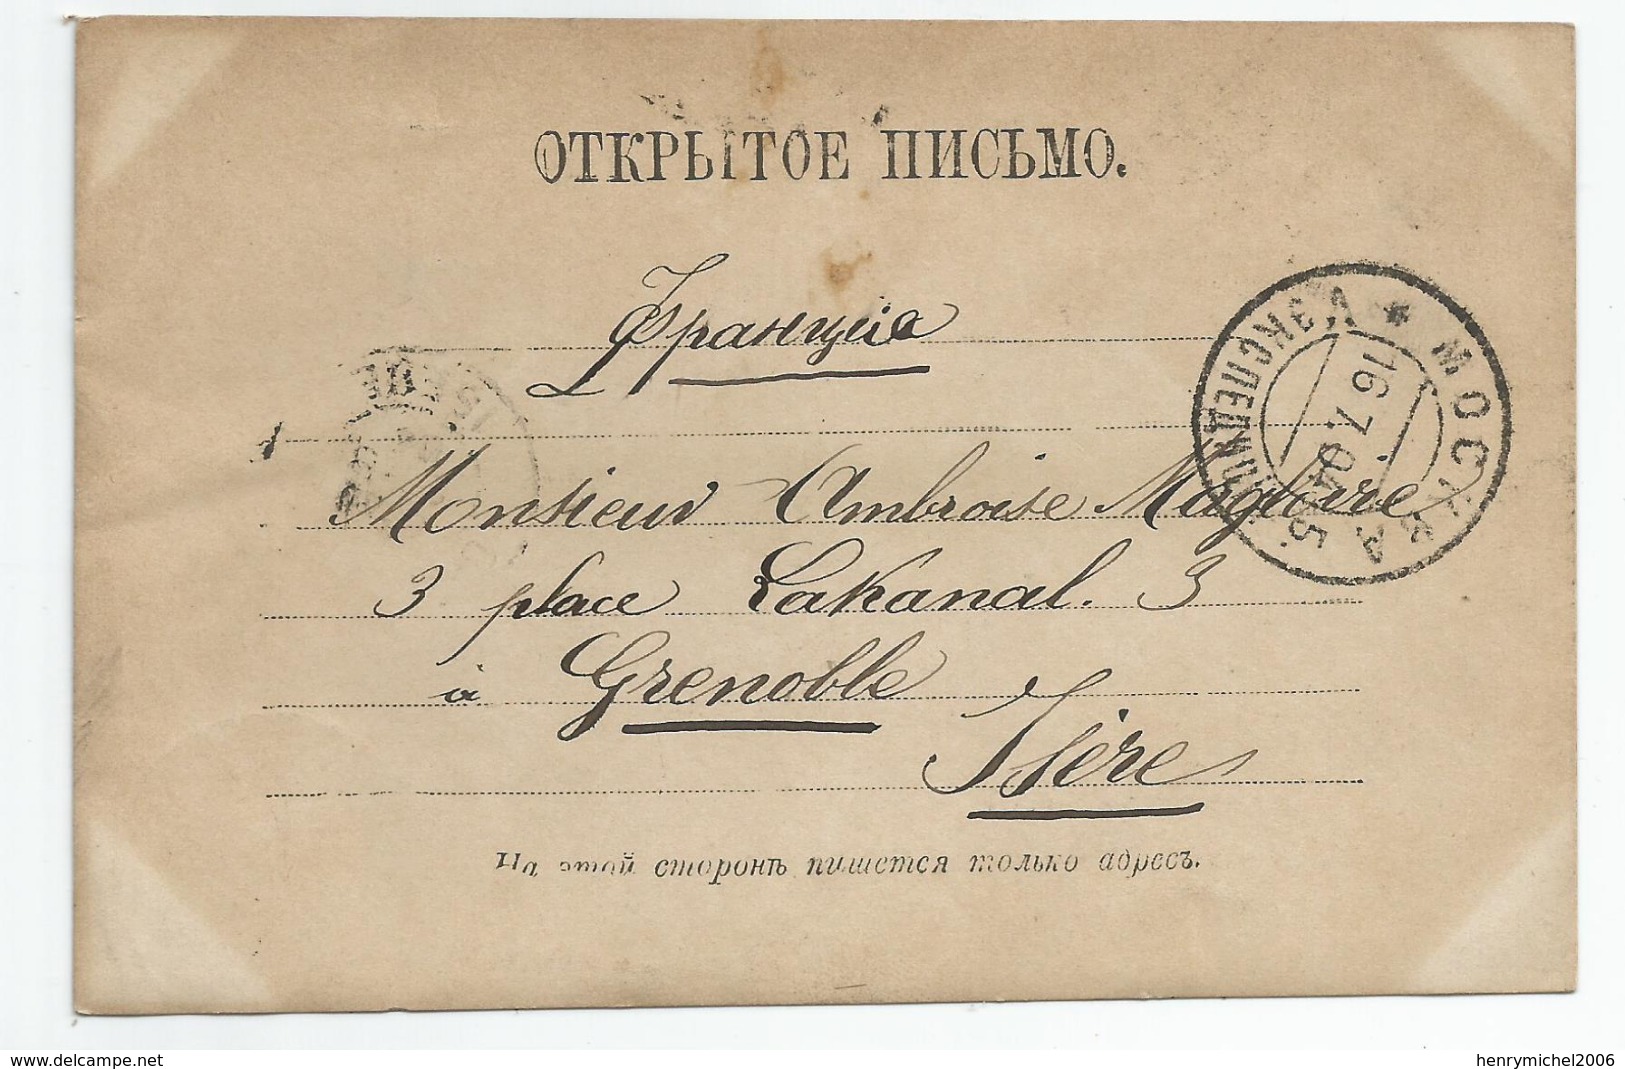 ОТКРЫТОЕ ПИСЬМО.
Франція
МОСКВА
V ЭКСПЕДИЦІЯ
16 7 04
Б
Monsieur Ambroise Magloire
3 place Lakanal. 3
à Grenoble
Isère
На этой сторонѣ пишется только адресъ.
www.delcampe.net
henrymichel2006